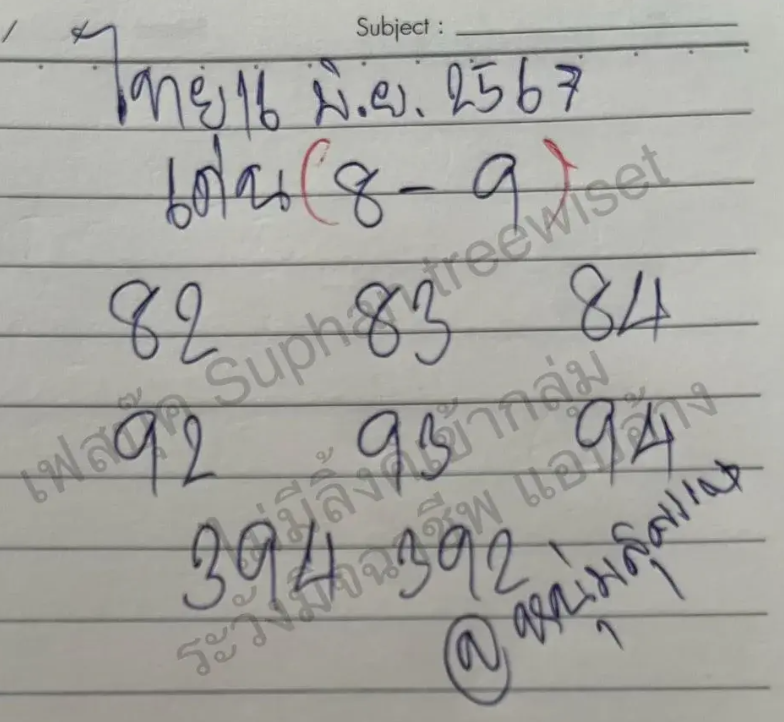 Subject :
ไทย 16 มิ.ย. 2567
เด่น (8 - 9)
82 83 84
92 93 94
394 392
เฟสบุ๊ค Suphan treewiset
ไม่มีลิ้งค์เข้ากลุ่ม
ระวังมิจฉาชีพ แอบอ้าง